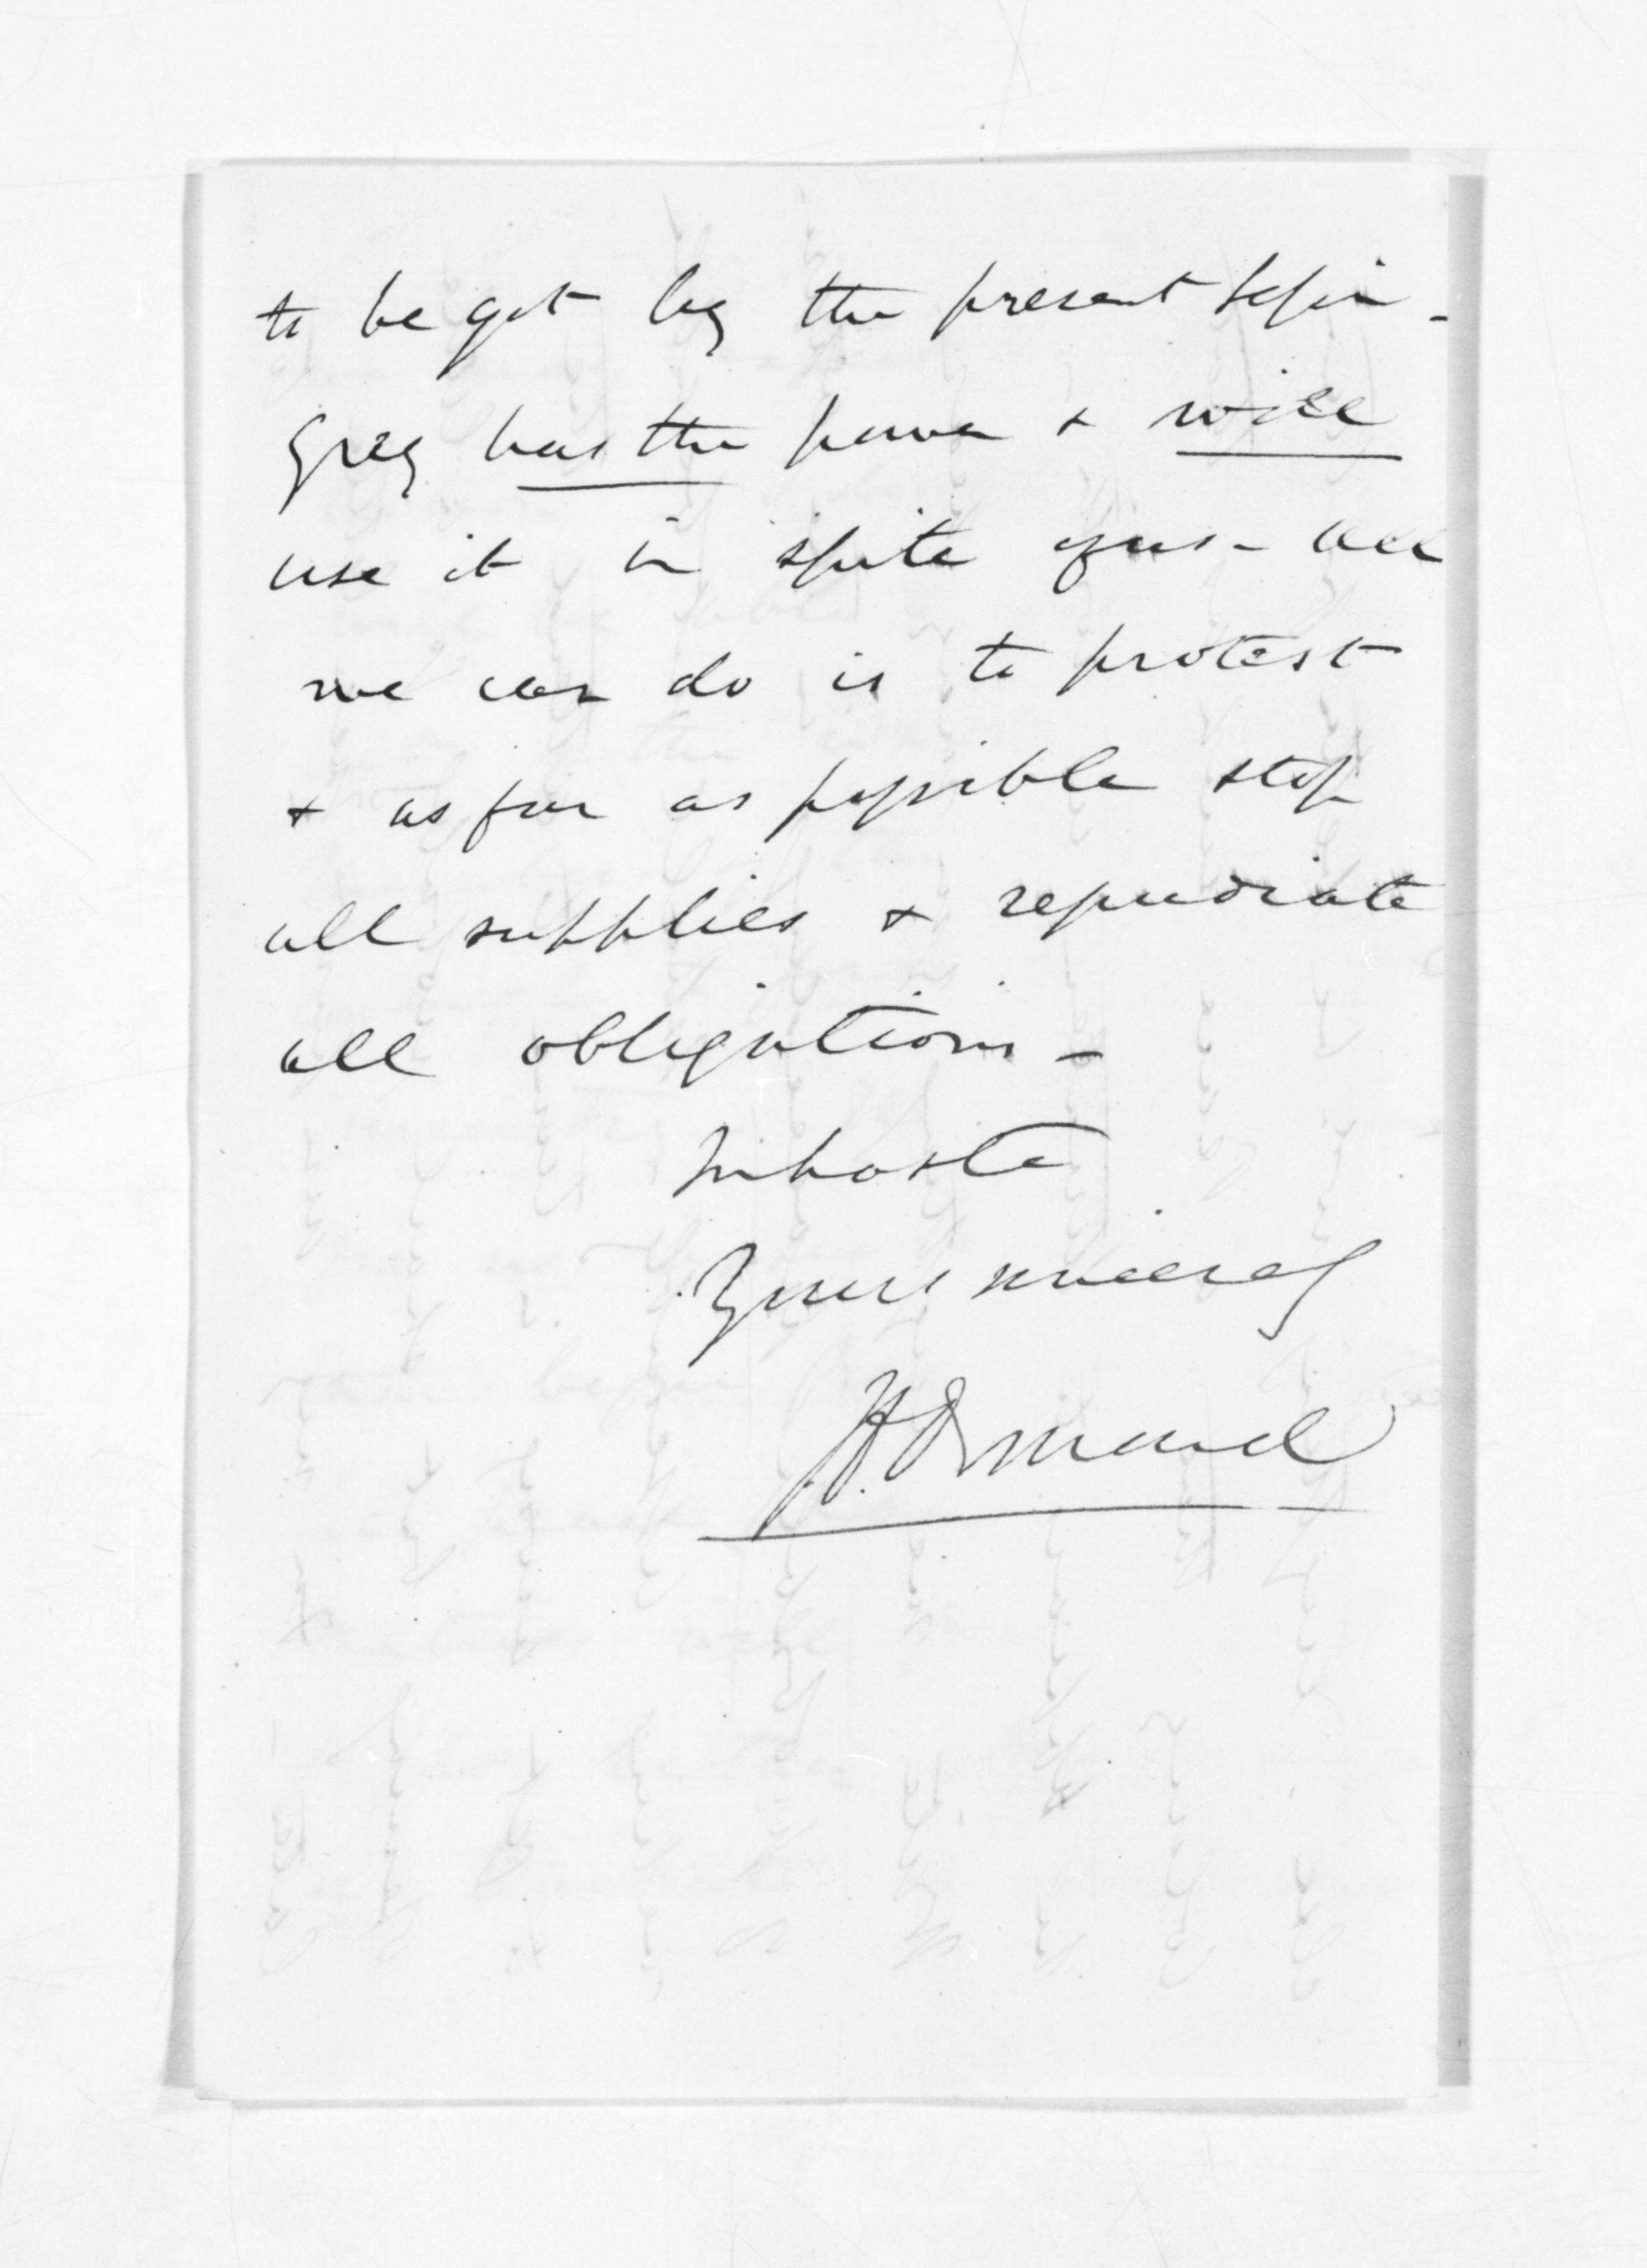 to be got by the present
Grey has the power & will
use it in spite of us - all
we can do is to protest
& as far as possible stop
all supplies & repudiate
all obligations -
In haste
Yours sincerely
J. D. Ormond